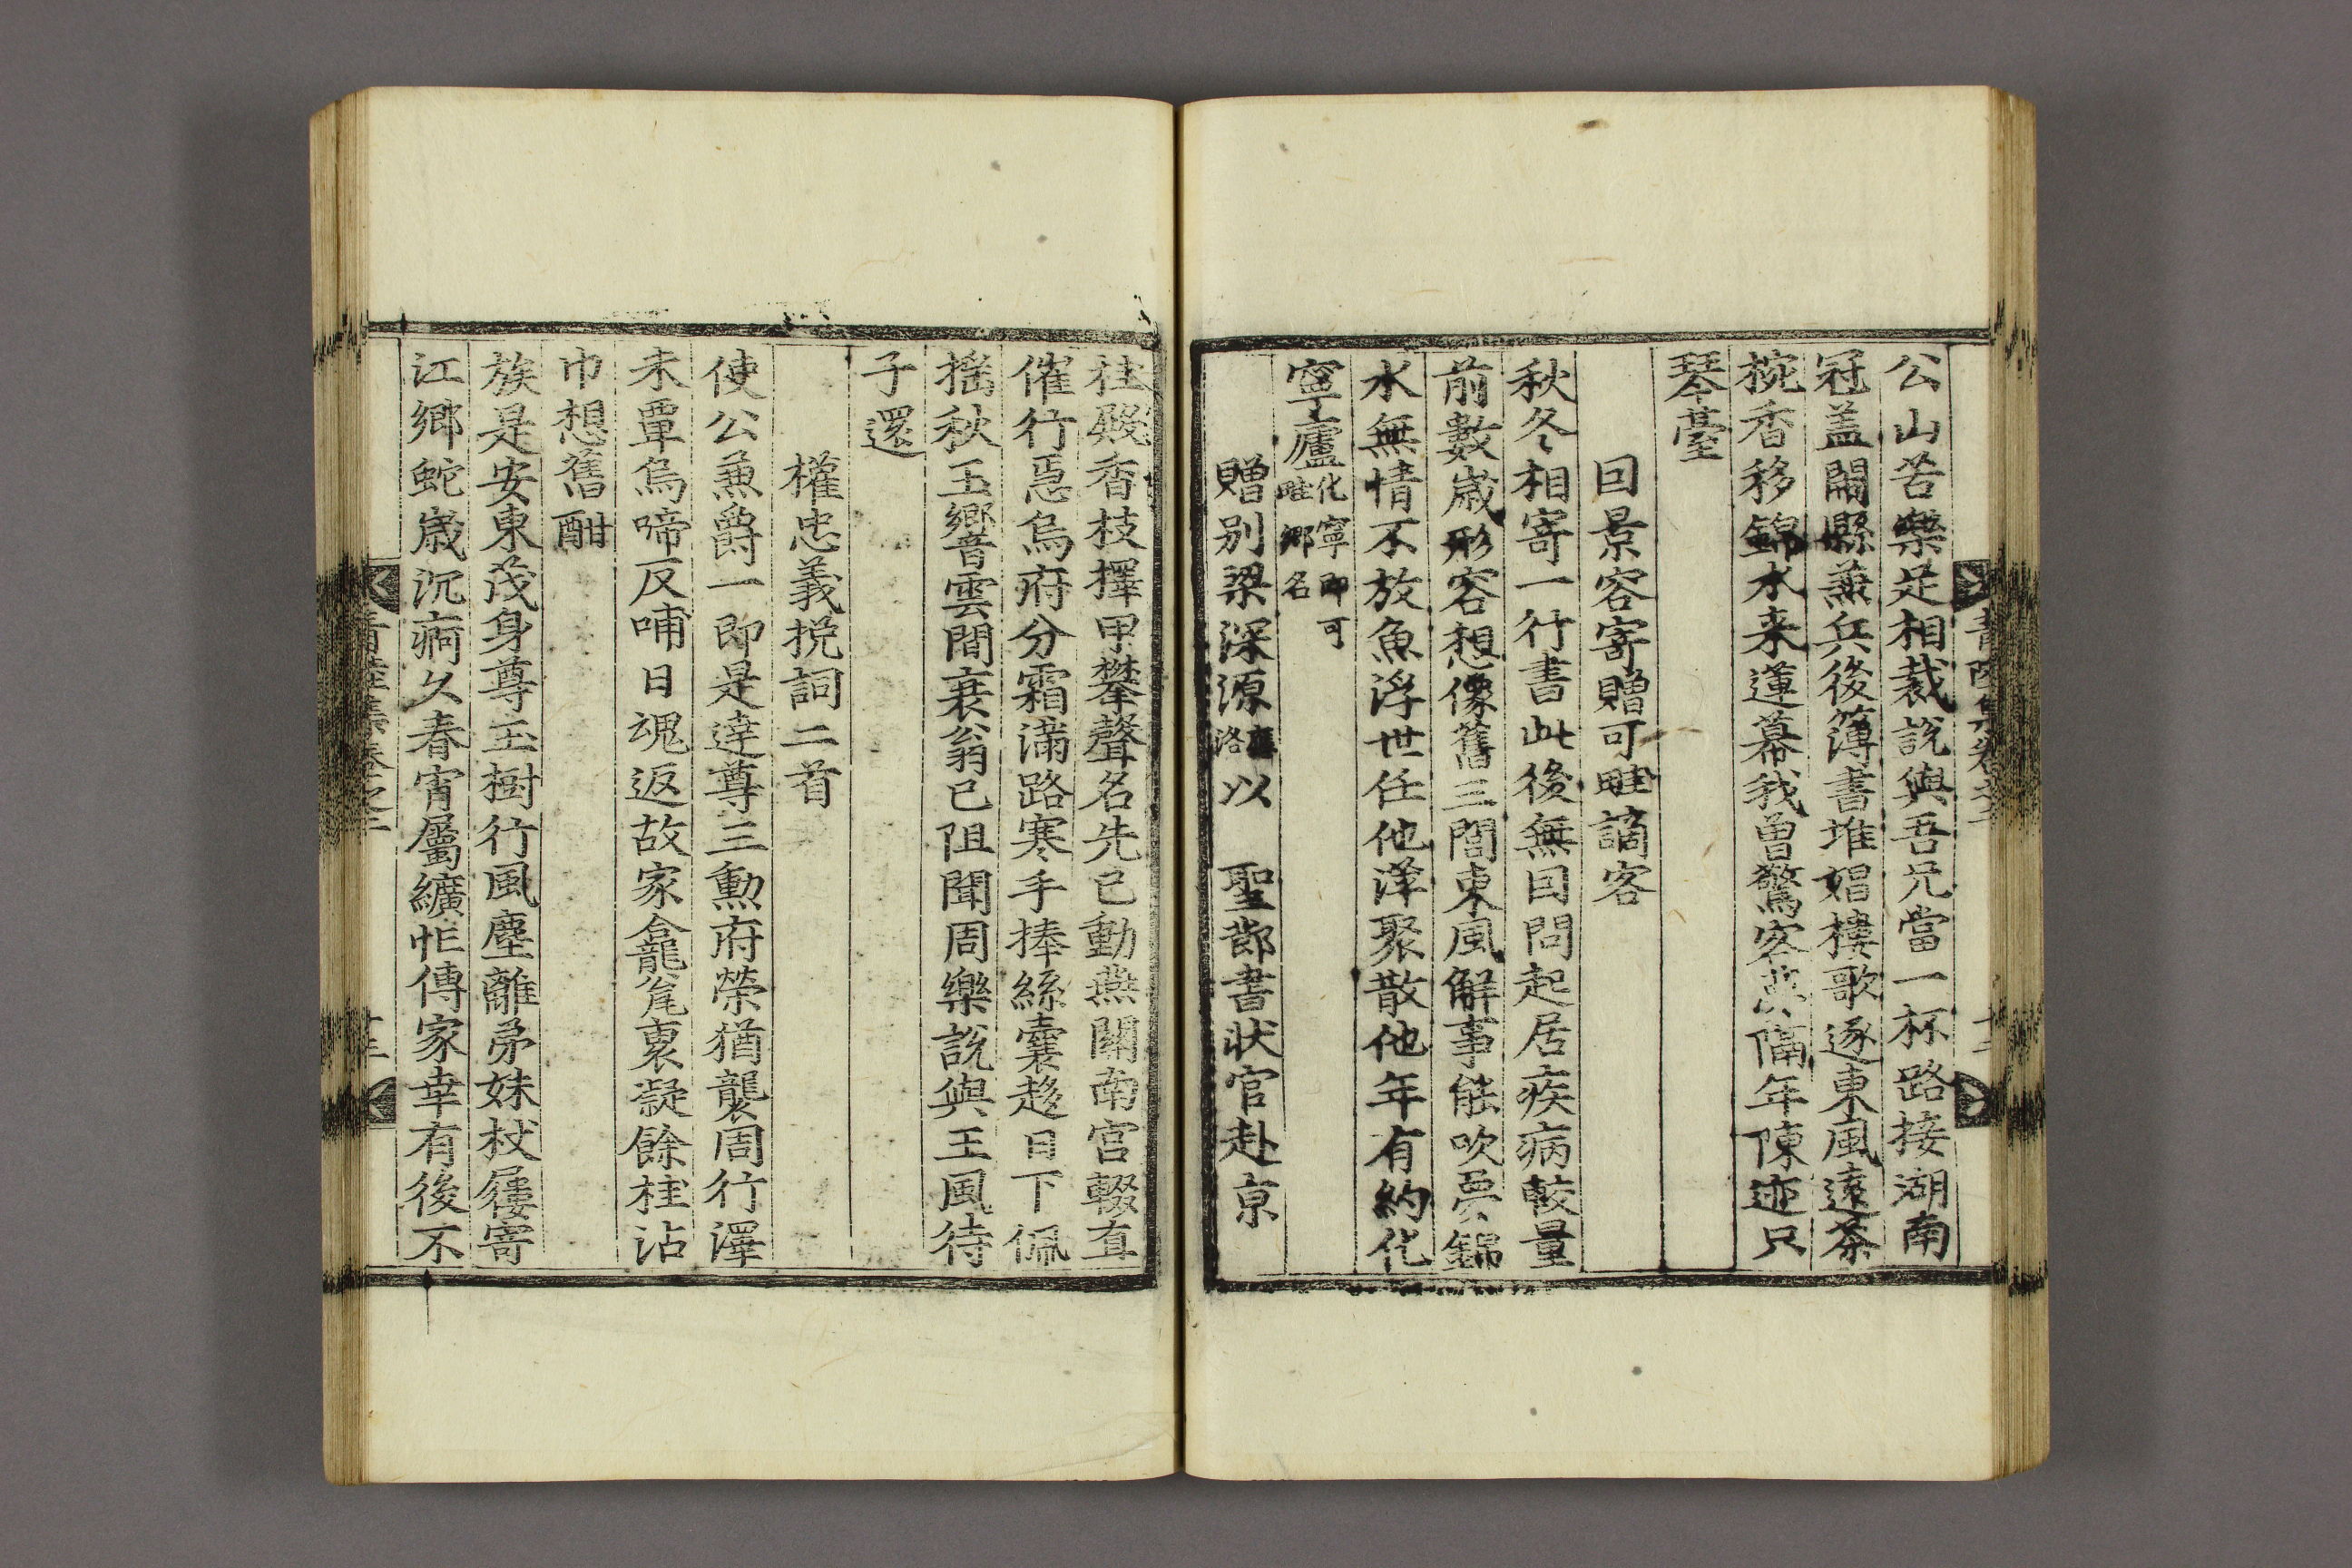 公山苦樂足相裁說與吾兄當一杯路接湖南
冠盖閙縣兼兵後簿書堆娼樓歌逐東風遠茶
椀香移錦水來蓮幕我曾驚客隔年陳迹只
琴臺
回景容寄贈可畦謫客
秋冬相寄一行書此後無回問起居疾病較量
前數歲形容想像舊三閭東風解事能吹夢錦
水無情不放魚浮世任他泽聚散他年有約化
寧廬化寧即可畦鄉名
贈别梁深源洛以 聖節書狀官赴京
桂殿香枝擇甲攀聲名先已動燕關南宫輟直
催行急烏府分霜滿路寒手捧絲囊趍日下佩
搖秋玉響雲間衰翁已阻聞周樂說與王風待
子還
權忠義挽詞二首
使公兼爵一即是達尊三勲府榮猶襲周行澤
未覃烏啼反哺日魂返故家龕甃裏凝餘柱沾
巾想舊酣
族是安東茂身尊玉樹行風塵離弟妹杖屨寄
江鄉蛇歲沉痾久春宵屬纊忙傳家幸有後不